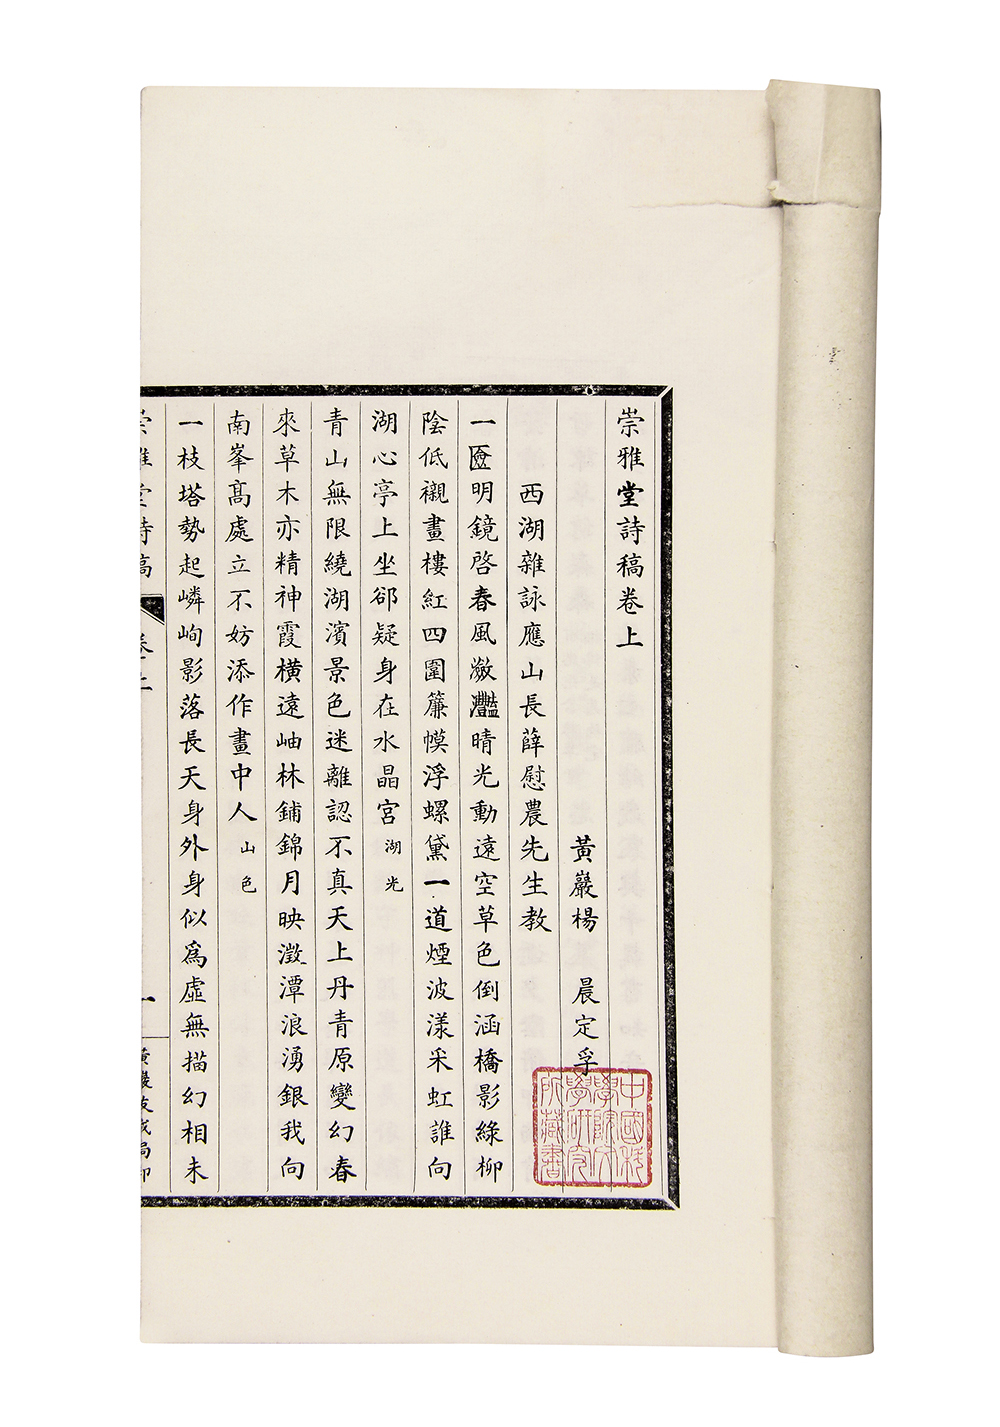 崇雅堂詩稿卷上
黃巖楊 晨定孚
西湖雜詠應山長薛慰農先生教
一匳明鏡啓春風瀲灩晴光動遠空草色倒涵橋影綠柳
陰低襯畫樓紅四圍簾幙浮螺黛一道煙波漾采虹誰向
湖心亭上坐郤疑身在水晶宮湖光
青山無限繞湖濱景色迷離認不真天上丹青原變幻春
來草木亦精神霞橫遠岫林鋪錦月映澂潭浪湧銀我向
南峯高處立不妨添作畫中人山色
一枝塔勢起嶙峋影落長天身外身似爲虛無描幻相未
崇雅堂詩稿
卷上
一
黃巖友成局印
中國科
學院文
學研究
所藏書